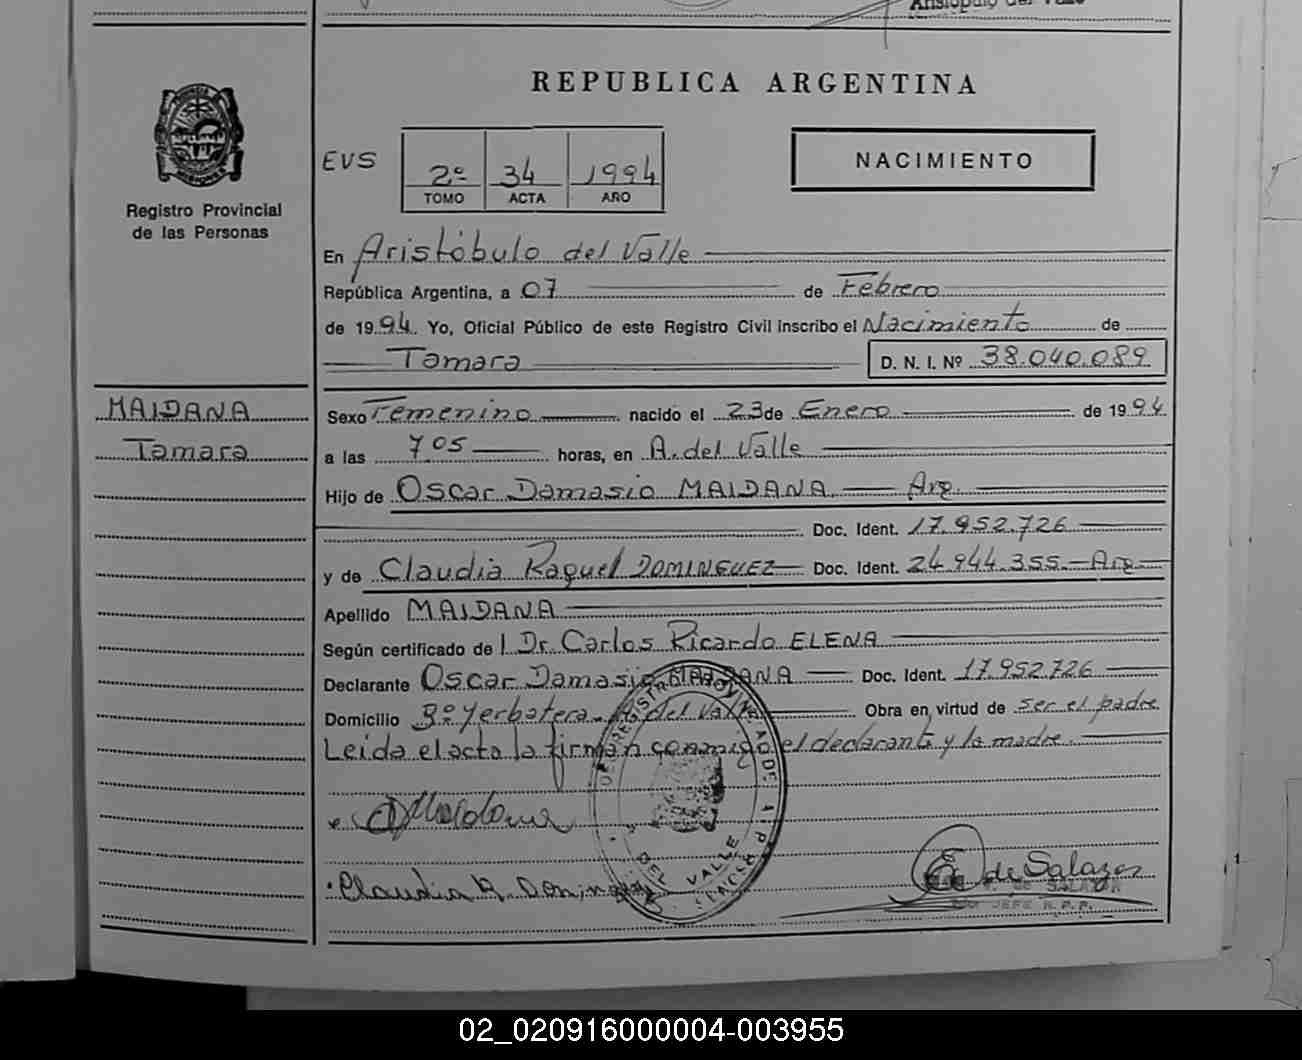 Aristóbulo del Valle
REPUBLICA ARGENTINA
EVS
2º 34 1994
TOMO ACTA AÑO
NACIMIENTO
Registro Provincial
de las Personas
En Aristóbulo del Valle
República Argentina, a 07 de Febrero
de 1994. Yo, Oficial Público de este Registro Civil inscribo el Nacimiento de
Tamara D. N. I. Nº 38.040.089
MAIDANA
Tamara
Sexo Femenino nacido el 23 de Enero de 1994
a las 7 05 horas, en A. del Valle
Hijo de Oscar Damasio MAIDANA Arg.
Doc. Ident. 17.952.726
y de Claudia Raquel DOMINGUEZ Doc. Ident. 24.944.355.- Arg
Apellido MAIDANA
Según certificado de l Dr. Carlos Ricardo ELENA
Declarante Oscar Damasio MAIDANA Doc. Ident. 17.952.726
Domicilio Bº Yerbatera A. del Valle Obra en virtud de ser el padre
Leida el acta la firman conmigo el declarante y la madre.
Claudia R. Dominguez
E. de Salazar
DE SALAZAR
JEFE R.P.P.
DEL VALLE
02_020916000004-003955